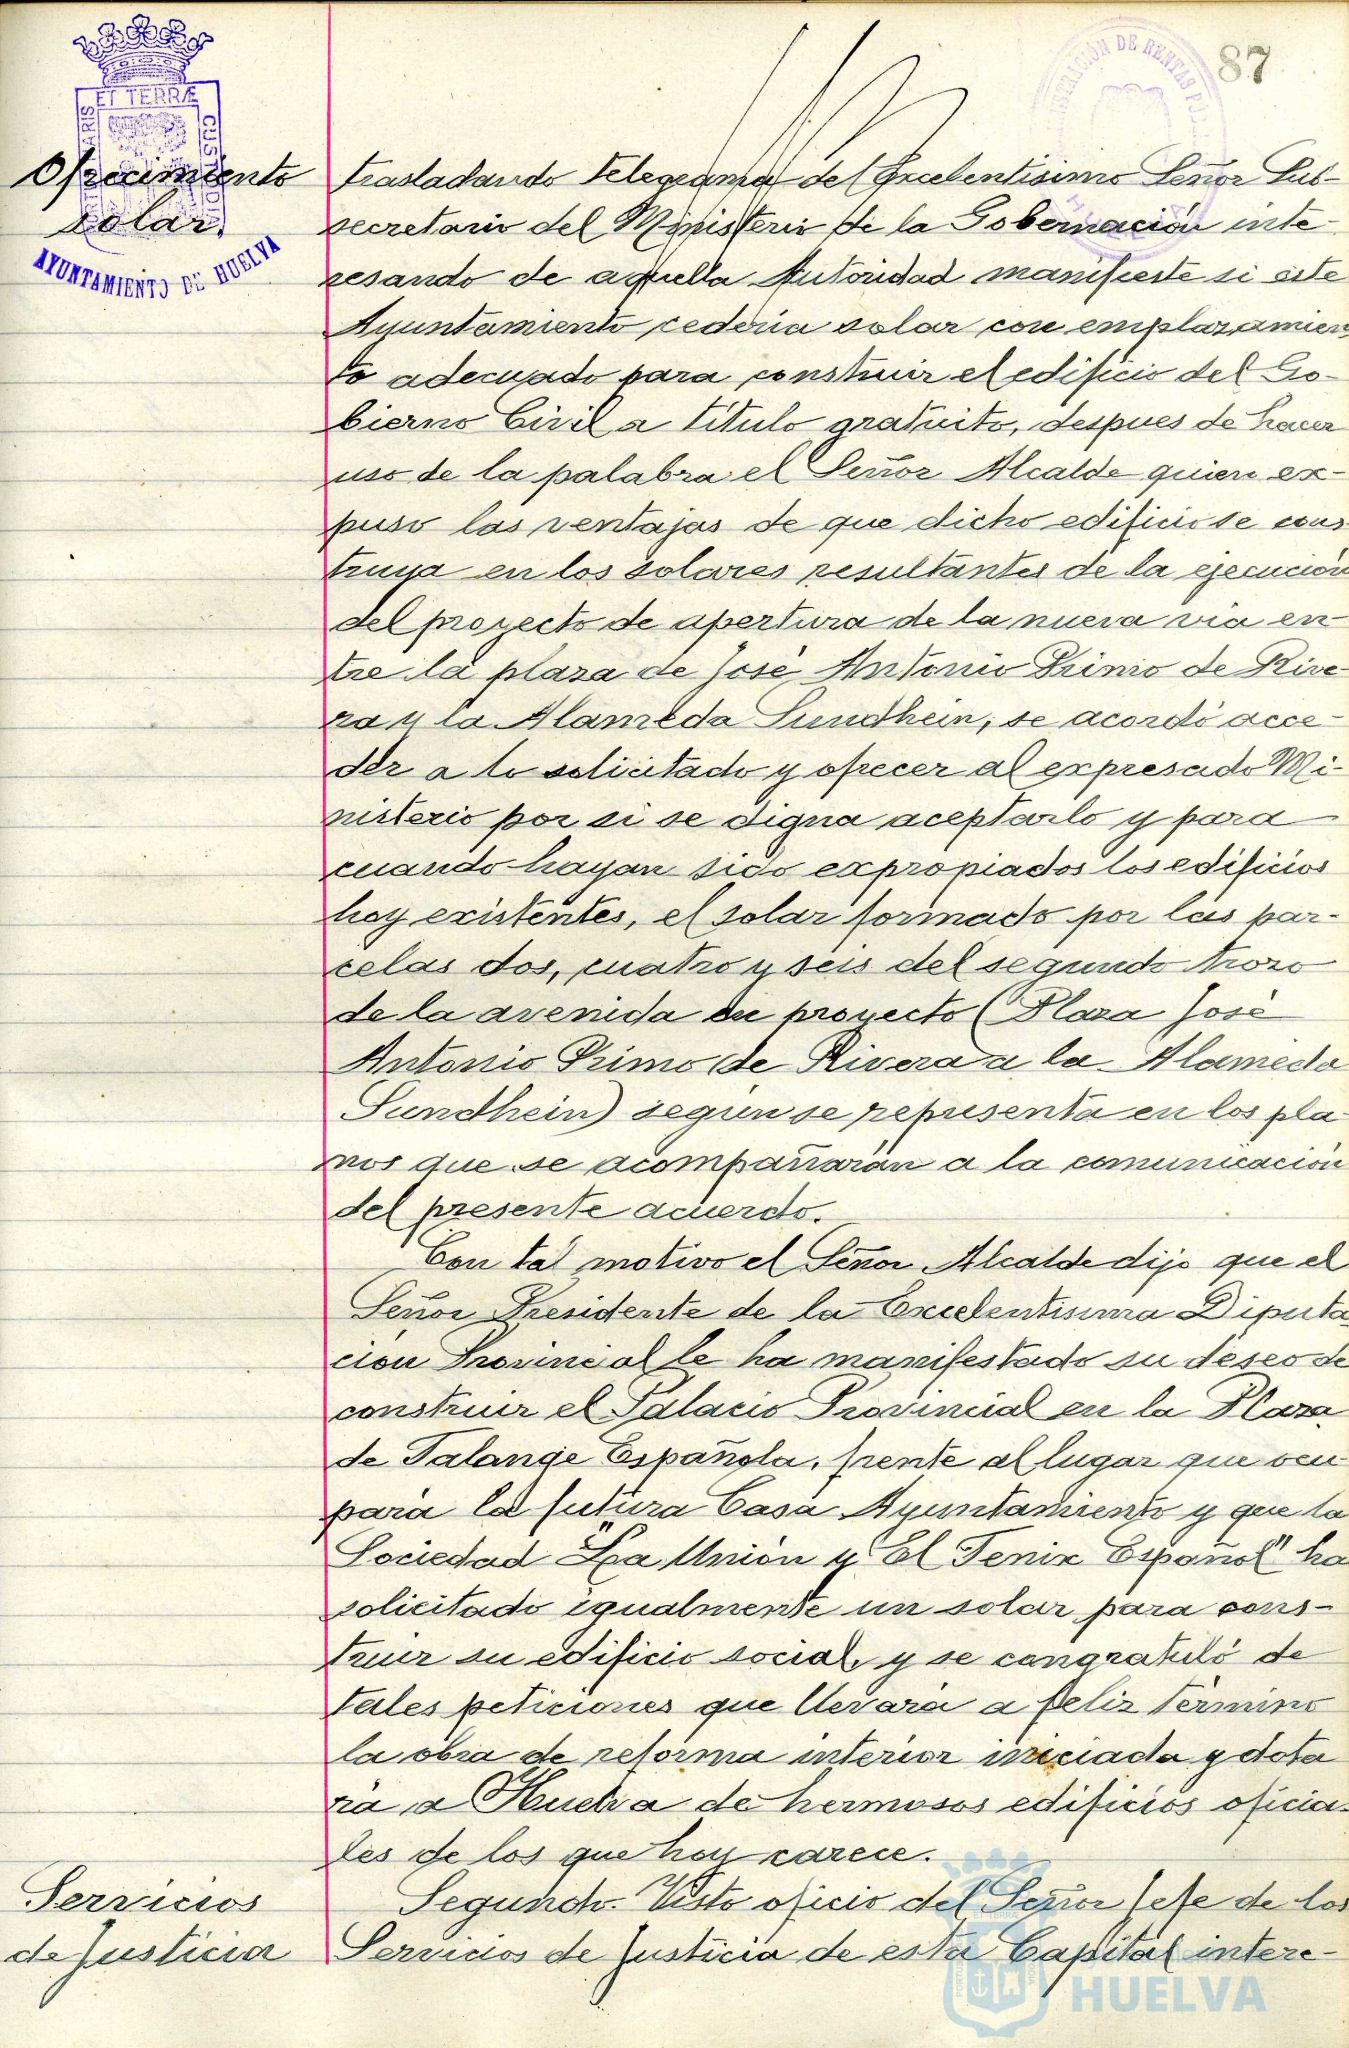 87
ET TERRÆ
AYUNTAMIENTO DE HUELVA
Ofrecimiento
solar.
trasladando telegrama del Excelentisimo Señor Sub-
secretario del Ministerio de la Gobernación inte-
resando de aquella Autoridad manifieste si este
Ayuntamiento cederia solar con emplazamien
to adecuado para construir el edificio del Go-
bierno Civil a titulo gratuito, despues de hacer
uso de la palabra el Señor Alcalde quien ex-
puso las ventajas de que dicho edificio se cons
truya en los solares resultantes de la ejecución
del proyecto de apertura de la nueva via en-
tre la plaza de José Antonio Primo de Rive-
ra y la Alameda Sundhein, se acordó acce-
der a lo solicitado y ofrecer al expresado Mi-
nisterio por si se digna aceptarlo y para
cuando hayan sido expropiados los edificios
hoy existentes, el solar formado por las par-
celas dos, cuatro y seis del segundo trozo
de la avenida en proyecto (Plaza José
Antonio Primo de Rivera a la Alameda
Sundhein) según se representa en los pla-
nos que se acompañarán a la comunicación
del presente acuerdo.
Con tal motivo el Señor Alcalde dijo que el
Señor Presidente de la Excelentisima Diputa
ción Provincial le ha manifestado su deseo de
construir el Palacio Provincial en la Plaza
de Falange Española, frente al lugar que ocu
pará la futura Casa Ayuntamiento y que la
Sociedad "La Unión y El Fenix Español" ha
solicitado igualmente un solar para cons-
truir su edificio social, y se congratuló de
tales peticiones que llevará a feliz término
la obra de reforma interior iniciada y dota
rá a Huelva de hermosos edificios oficia-
les de los que hoy carece.
Servicios
de Justicia
Segundo. Visto oficio del Señor Jefe de los
Servicios de Justicia de esta Capital intere-
HUELVA